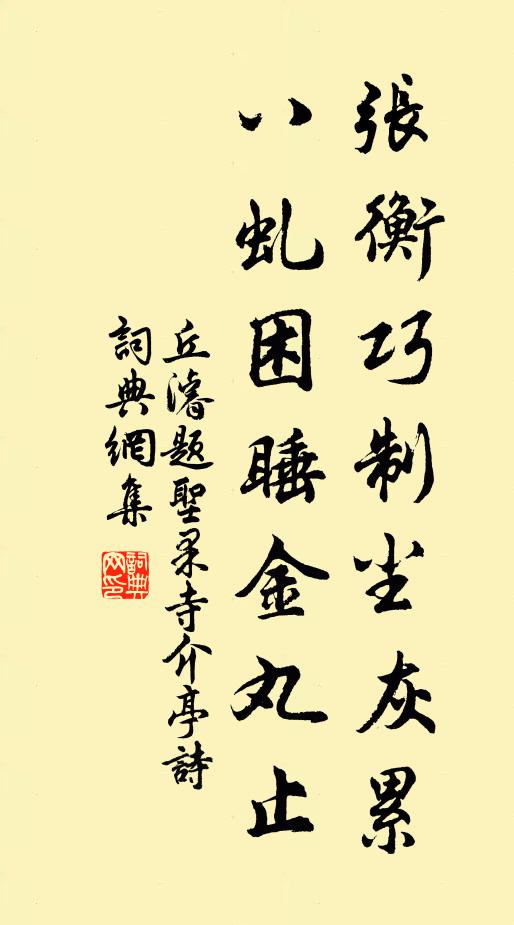 張衡巧制尘灰累
八虬困睡金丸止
丘濬題聖果寺介亭詩
詞典網集
詞典
网印